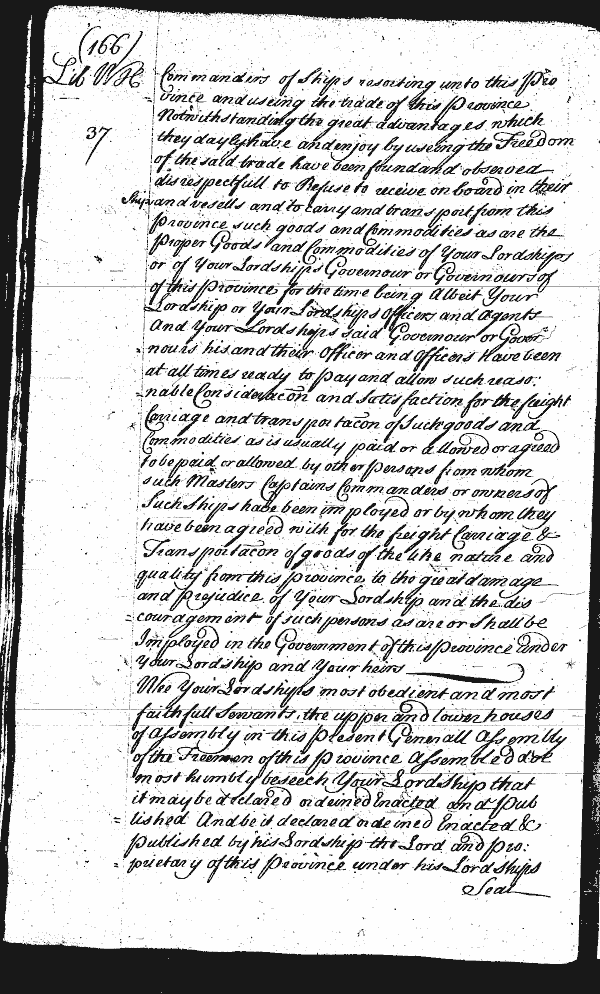 (166)
Lib WH
37
Commanders of Ships resorting unto this Pro
vince and useing the trade of this Province
Notwithstanding the great advantages which
they dayly have and enjoy by useing the Freedom
of the said trade have been found and observed
disrespectfull to Refuse to receive on board in their
Ships and vesells and to carry and transport from this
Province such goods and Commodities as are the
Proper Goods and Commodities of Your Lordships
or of Your Lordships Governour or Governours of
of this Province for the time being Albeit Your
Lordship or Your Lordships Officers and Agents
And Your Lordships said Governour or Gover
nours his and their Officer and Officers Have been
at all times ready to Pay and allow such reaso:
nable Consideracon and Satisfaction for the freight
Carriage and transportacon of Such goods and
Commodities as is usually paid or allowed or agreed
to be paid or allowed by other Persons from whom
such Masters Captains Commanders or owners of
Such Ships have been imployed or by whom they
have been agreed with for the freight Carriage &
Transportacon of goods of the like nature and
quality from this Province to the great damage
and Prejudice of Your Lordship and the dis
couragement of such persons as are or Shall be
Imployed in the Government of this Province under
Your Lordship and Your heirs
Wee Your Lordships most obedient and most
faithfull Servants, the upper and lower houses
of Assembly in this Present Generall Assembly
of the Freemen of this Province Assembled doe
most humbly beseech Your Lordship that
it may be declared ordeined Enacted and Pub
lished And be it declared ordeined Enacted &
Published by his Lordship the Lord and Pro:
prietary of this Province under his Lordships
Seal